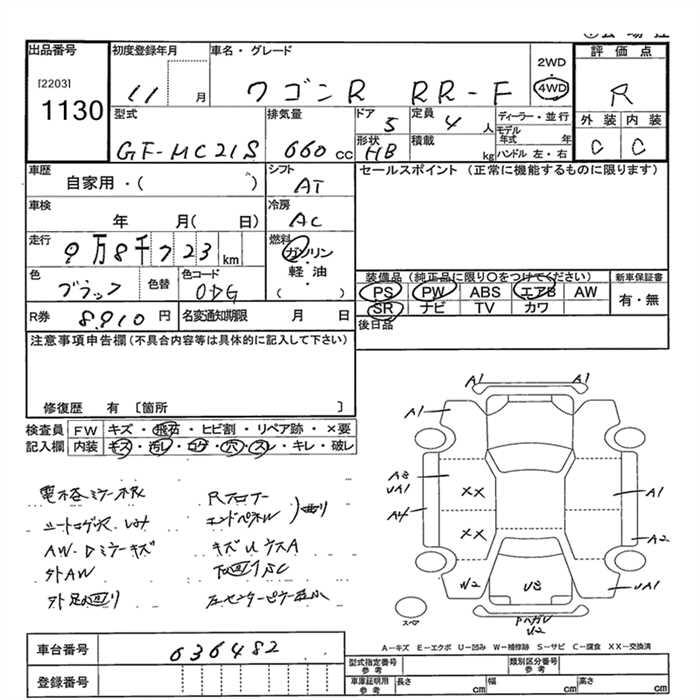 出品番号
[2203]
1130
初度登録年月
11 月
車名・グレード
ワゴンR RR-F
2WD
4WD
評価点
R
外装 内装
C C
型式
GF-MC21S
排気量
660 cc
ドア
5
定員
4 人
形状
HB
積載
kg
ディーラー・並行
モデル年式 年
ハンドル 左・右
車歴
自家用・( )
シフト
AT
セールスポイント(正常に機能するものに限ります)
車検
年 月( 日)
冷房
AC
走行
9万8千723 km
燃料
ガソリン
・
軽油
・
( )
色
ブラック
色替
色コード
0DG
装備品(純正品に限り○をつけてください)
PS PW ABS エアB AW
SR ナビ TV カワ
新車保証書
有・無
R券 8.910 円
名変通知期限 月 日
後日品
注意事項申告欄(不具合内容等は具体的に記入して下さい)
修復歴 有 〔箇所 〕
検査員記入欄
FW キズ・飛石・ヒビ割・リペア跡・×要
内装 キズ・汚レ・コゲ・穴・スレ・キレ・破レ
AW・Dミラーキズ
外AW
A1 A1
A1
A3
UA1
A4
XX
XX
A1
A2
W2
U3
UA1
U2
スペア
A-キズ E-エクボ U-凹み W-補修跡 S-サビ C-腐食 XX-交換済
車台番号 636482
登録番号
型式指定番号 参考
類別区分番号 参考
車庫証明用 参考
長さ cm
幅 cm
高さ cm